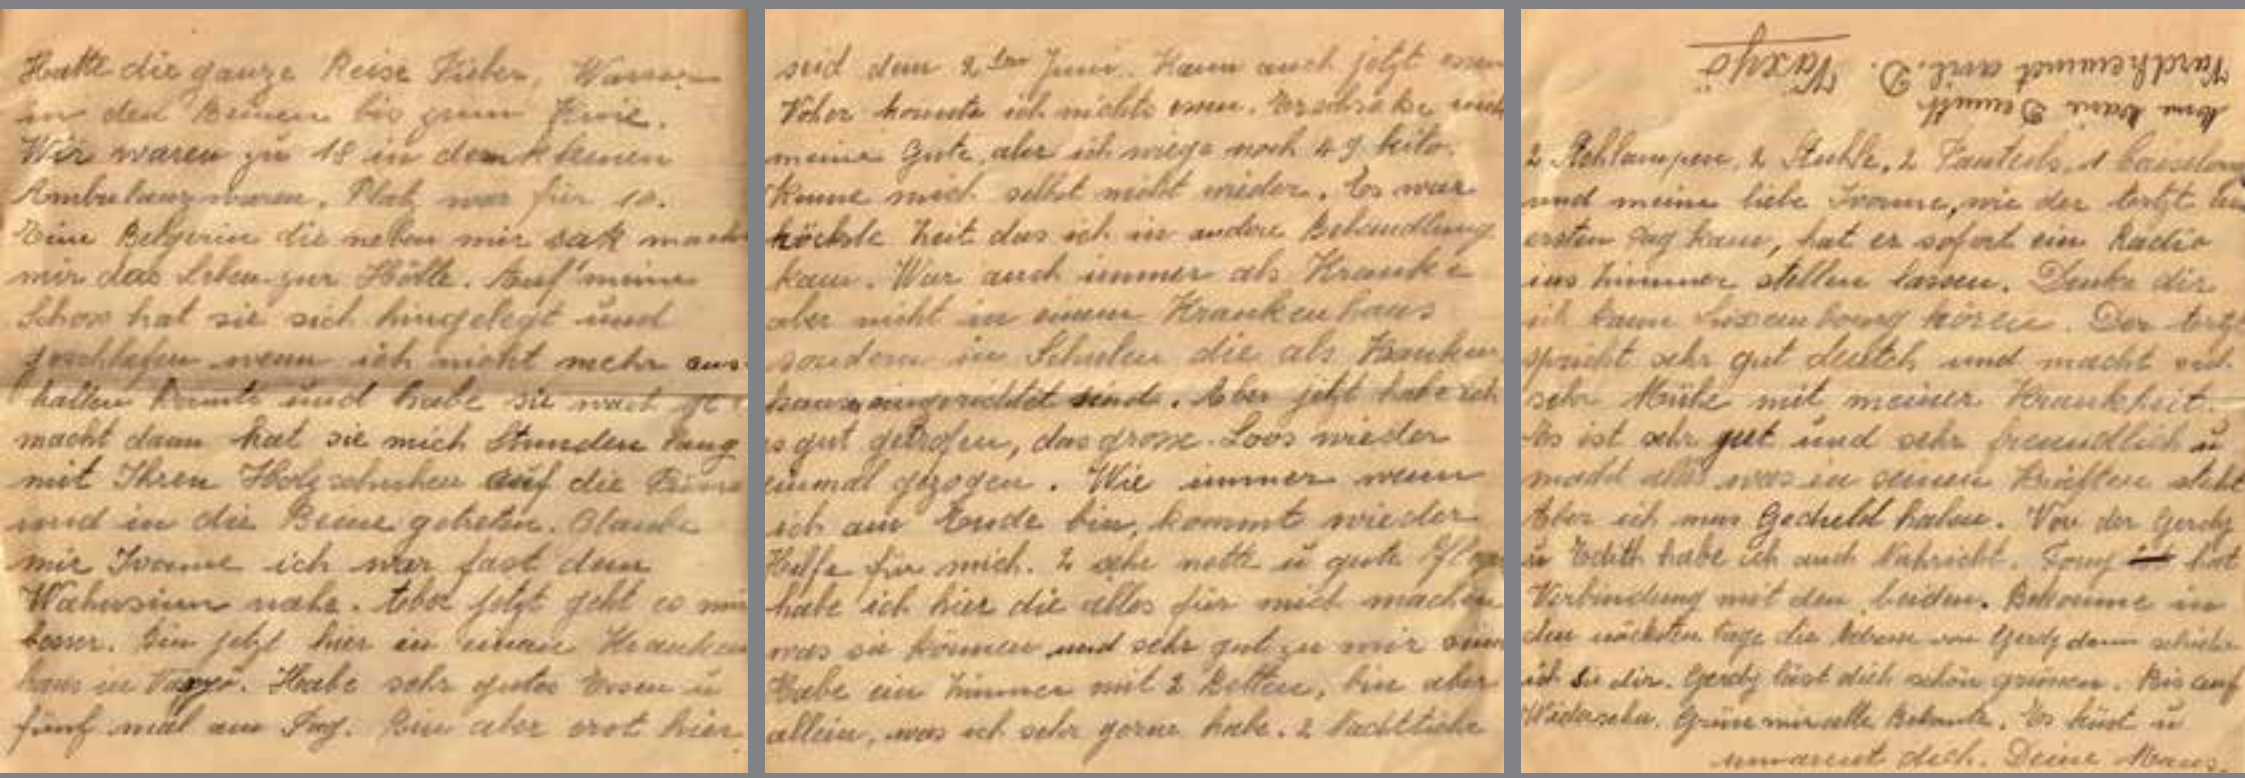 Hatte die ganze Reise Fieber, Wasser
in den Beinen bis zum Knie.
Wir waren zu 18 in dem kleinen
Ambulanzwaren. Platz war für 10.
Eine Belgerin die neben mir sak mach
mir das Leben zur Hölle. Auf meine
Schos hat sie sich hingelegt und
geschlafen wenn ich nicht mehr aus-
halten konnte und habe sie wach ge
macht dann hat sie mich Stunden lang
mit Ihren Holzschuhen auf die Füsse
und in die Beine getreten. Glaube
mir Ivonne ich war fast dem
Wahnsinn nahe. Aber jetzt geht es mir
besser. Bin jetzt hier in einen Kranken
haus in Vaxjö. Habe sehr gutes Essen u
fünf mal am Tag. Bin aber erst hier
seid dem 2ten Juni. Kann auch jetzt essen
Voher konnte ich nichts essen. Erschreke nich
meine Gute, aber ich wiege noch 49 kilo.
Kenne mich selbst nicht wieder. Es war
höchste Zeit das ich in andere Behandlung
kam. War auch immer als Kranke
aber nicht in einem Krankenhaus
sondern in Schulen die als Kranken
haus eingerichtet sind. Aber jetzt habe ich
es gut getrofen, das grosse Loos wieder
einmal gezogen. Wie immer wenn
ich am Ende bin, kommt wieder
Hilfe für mich. 2 sehr nette u gute
habe ich hier die alles für mich machen
was sie können und sehr gut zu mir sind
Habe ein Zimmer mit 2 Betten, bin aber
allein, was ich sehr gerne habe. 2 Nachttische
Vaxjö
Vardhemmet avd. D.
2 Stehlampen, 2 Stühle, 2 Fauteuls, 1 Caiselong
und meine liebe Ivonne, wie der Artzt am
ersten Tag kam, hat er sofort ein Radio
ins Zimmer stellen lassen. Denke dir
ich kann Luxembourg hören. Der Artzt
spricht sehr gut deutch und macht sich
sehr Mühe mit meiner Krankheit.
Es ist sehr gut und sehr freundlich u
macht alles was in seinen Kräften steht
Aber ich mus Geduld haben. Von der Gerdy
u Edith habe ich auch Nahricht. Tony hat
Verbindung mit den beiden. Bekomme in
den nächsten Tage die von Gerdy dann schicke
ich sie dir. Gerdy läst dich schön grüssen. Bis auf
Widersehn. Grüse mir alle Bekante. Es küst u
umarmt dich. Deine Maus.